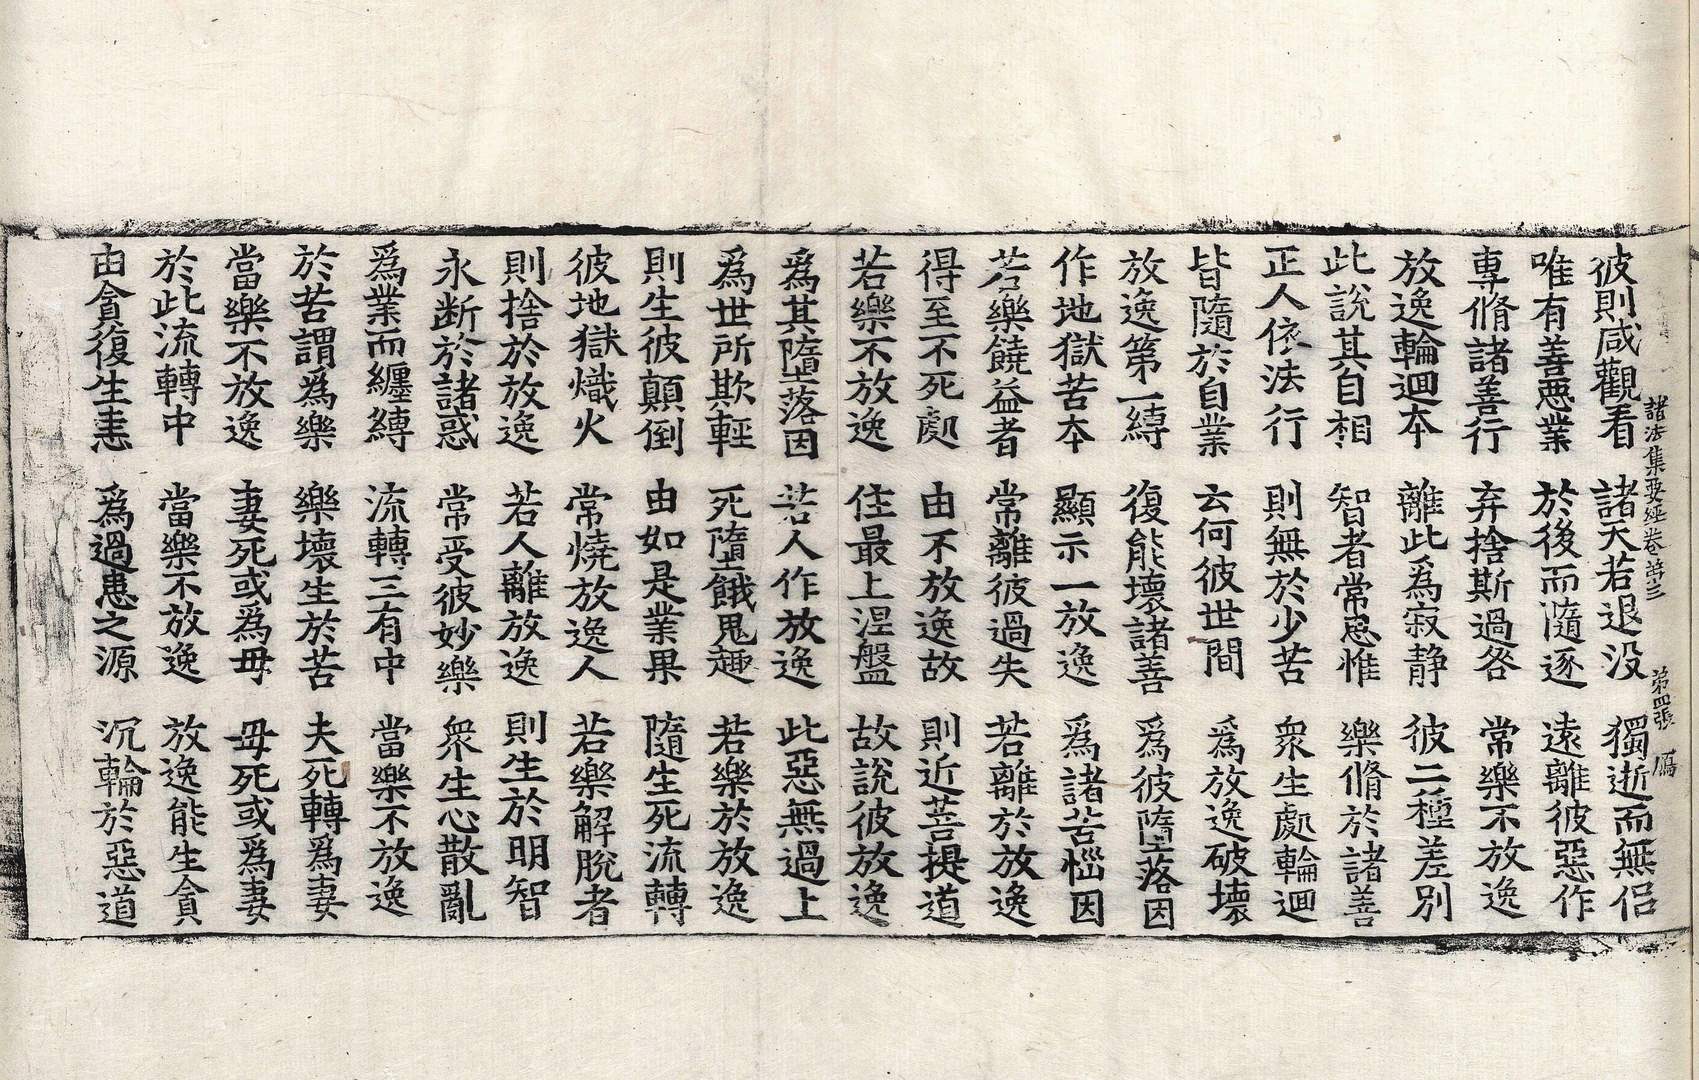 諸法集要經卷第三 第四張 鴈
彼則咸觀看 諸天若退没 獨逝而無侣
唯有善惡業 於後而隨逐 遠離彼惡作
專脩諸善行 弃捨斯過咎 常樂不放逸
放逸輪迴本 離此爲寂静 彼二種差別
此說其自相 智者常思惟 樂脩於諸善
正人依法行 則無於少苦 衆生處輪迴
皆隨於自業 云何彼世間 爲放逸破壞
放逸第一縛 復能壞諸善 爲彼墮落因
作地獄苦本 顯示一放逸 爲諸苦惱因
若樂饒益者 常離彼過失 若離於放逸
得至不死處 由不放逸故 則近菩提道
若樂不放逸 住最上涅盤 故說彼放逸
爲其墮落因 若人作放逸 此惡無過上
爲世所欺輕 死墮餓鬼趣 若樂於放逸
則生彼顛倒 由如是業果 隨生死流轉
彼地獄熾火 常燒放逸人 若樂解脫者
則捨於放逸 若人離放逸 則生於明智
永断於諸惑 常受彼妙樂 衆生心散亂
爲業而纏縛 流轉三有中 當樂不放逸
於苦謂爲樂 樂壞生於苦 夫死轉爲妻
當樂不放逸 妻死或爲母 母死或爲妻
於此流轉中 當樂不放逸 放逸能生貪
由貪復生恚 爲過患之源 沉輪於惡道